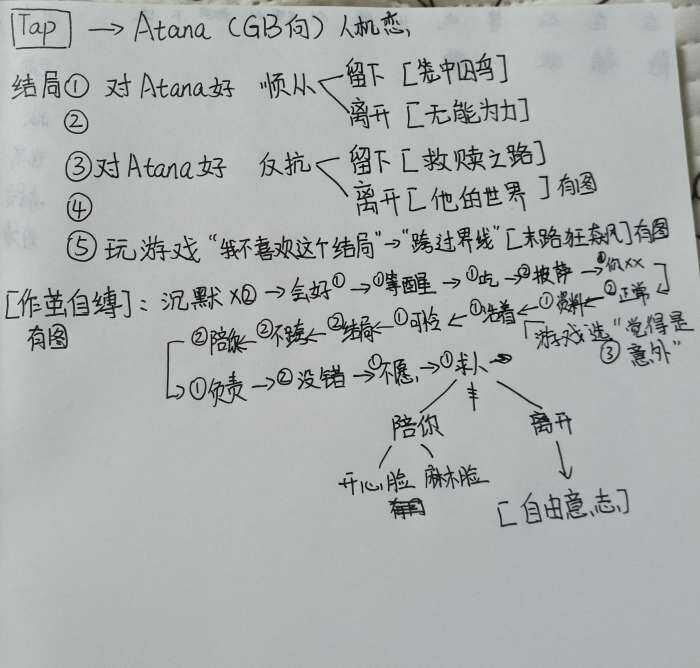 Tap → Atana (GB向) 人机恋,
结局① 对Atana好 顺从 留下 [笼中囚鸟]
② 离开 [无能为力]
③ 对Atana好 反抗 留下 [救赎之路]
④ 离开 [他的世界] 有图
⑤ 玩游戏 "我不喜欢这个结局"→"跨过界线" [末路狂飙] 有图
[作茧自缚]: 沉默×② → 会好① → ①等醒 → ①吃 → ②披萨 → 仍××
有图 ②陪你 ← ②不 ← ②结局 ← ①可怜 ← ① ← ①资料 ← ②正常
游戏选"觉得是
③ 意外"
①负责 → ②没错 → ①不愿, → ①求人 →
陪你 离开
开心脸 麻木脸
[自由意志]